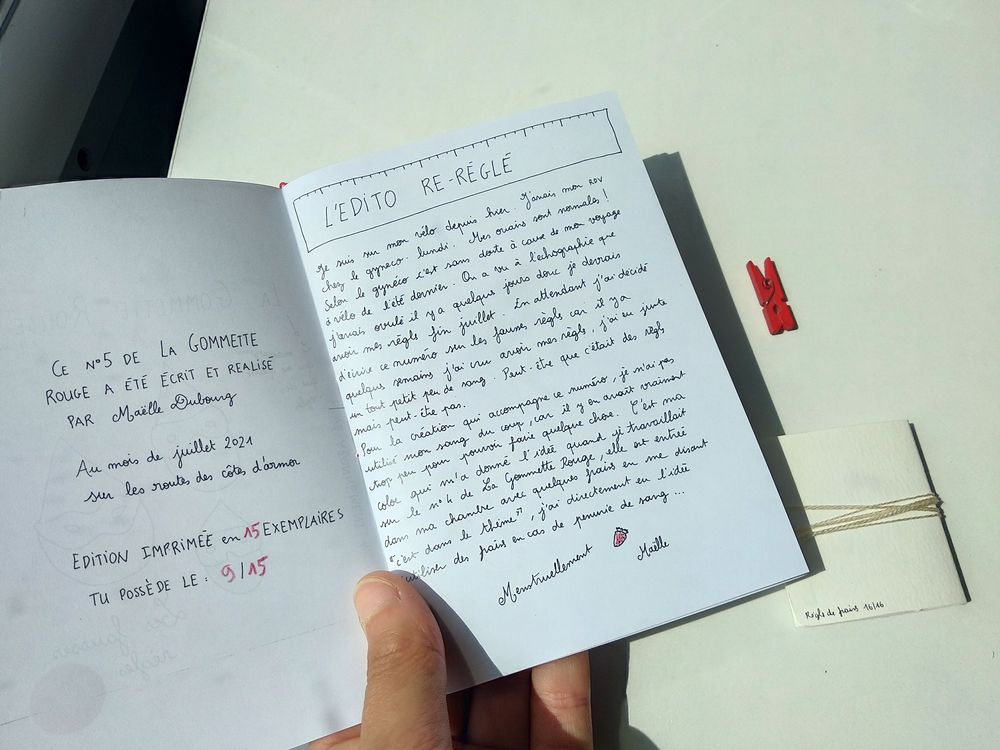 CE N°5 DE LA GOMMETTE
ROUGE A ÉTÉ ÉCRIT ET REALISÉ
PAR Maëlle Dubourg
Au mois de juillet 2021
sur les routes des côtes d'armor
EDITION IMPRIMÉE en 15 EXEMPLAIRES
TU POSSÈDE LE : 9/15
L'EDITO RE-RÉGLÉ
Je suis sur mon vélo depuis hier. J'avais mon RDV
chez le gyneco lundi. Mes ovaires sont normales !
Selon le gynéco c'est sans doute à cause de mon voyage
à vélo de l'été dernier. On a vu à l'échographie que
j'avais ovulé il y a quelques jours donc je devrais
avoir mes règles fin juillet. En attendant j'ai décidé
d'écrire ce numéro sur les fausses règles car il y a
quelques semaines j'ai cru avoir mes règles, j'ai eu juste
un tout petit peu de sang. Peut-être que c'était des règles
mais peut-être pas.
Pour la création qui accompagne ce numéro, je n'ai pas
utilisé mon sang du coup, car il y en avait vraiment
trop peu pour pouvoir faire quelque chose. C'est ma
coloc qui m'a donné l'idée quand je travaillait
sur le n°4 de La Gommette Rouge, elle est entrée
dans ma chambre avec quelques frais en me disant
"c'est dans le thème", j'ai directement eu l'idée
utiliser des frais en cas de penurie de sang...
Menstruellement
Maëlle
Règle de frais 16/16